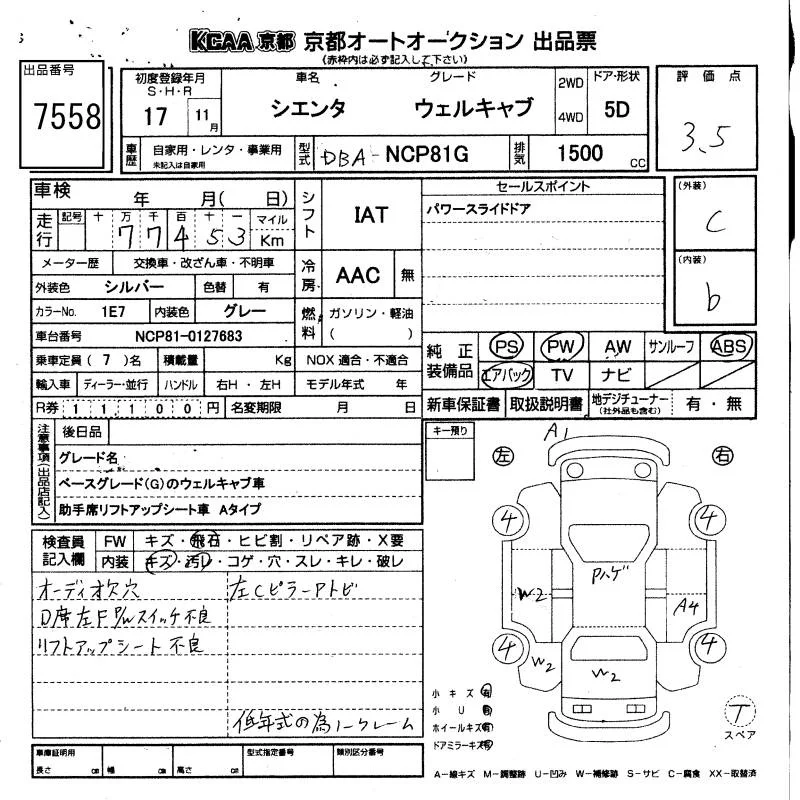 KCAA 京都 京都オートオークション 出品票
(赤枠内は必ず記入して下さい)
出品番号
7558
初度登録年月 車名 グレード 2WD ドア・形状
S・H・R
17 11月 シエンタ ウェルキャブ 4WD 5D
評価点
3.5
車歴 自家用・レンタ・事業用 型式 DBA-NCP81G 排気 1500 cc
未記入は自家用
車検 年 月( 日)
走行 記号 十 万 千 百 十 一 マイル
7 7 4 5 3 Km
シフト IAT
セールスポイント
パワースライドドア
(外装)
C
(内装)
b
メーター歴 交換車・改ざん車・不明車
冷房 AAC 無
外装色 シルバー 色替 有
カラーNo. 1E7 内装色 グレー
燃料 ガソリン・軽油
( )
車台番号 NCP81-0127683
乗車定員( 7 )名 積載量 Kg NOX 適合・不適合
輸入車 ディーラー・並行 ハンドル 右H・左H モデル年式 年
R券 1 1 1 0 0 円 名変期限 月 日
純正装備品 PS PW AW サンルーフ ABS
エアバック TV ナビ
新車保証書 取扱説明書 地デジチューナー 有・無
(社外品も含む)
注意事項(出品店記入)
後日品
グレード名
ベースグレード(G)のウェルキャブ車
助手席リフトアップシート車 Aタイプ
キー預り
左 右
A1
4 4
Pハゲ
W2 A4
4 4
W2 W2
検査員記入欄 FW キズ・飛石・ヒビ割・リペア跡・X要
内装 キズ・汚レ・コゲ・穴・スレ・キレ・破レ
オーディオ欠穴 左Cピラーアトビ
D席左F P/Wスイッチ不良
リフトアップシート不良
低年式の為ノークレーム
小キズ 有
小U 有
ホイールキズ 有
ドアミラーキズ 有
T
スペア
車庫証明用 型式指定番号 類別区分番号
長さ cm 幅 cm 高さ cm
A-線キズ M-調整跡 U-凹み W-補修跡 S-サビ C-腐食 XX-取替済